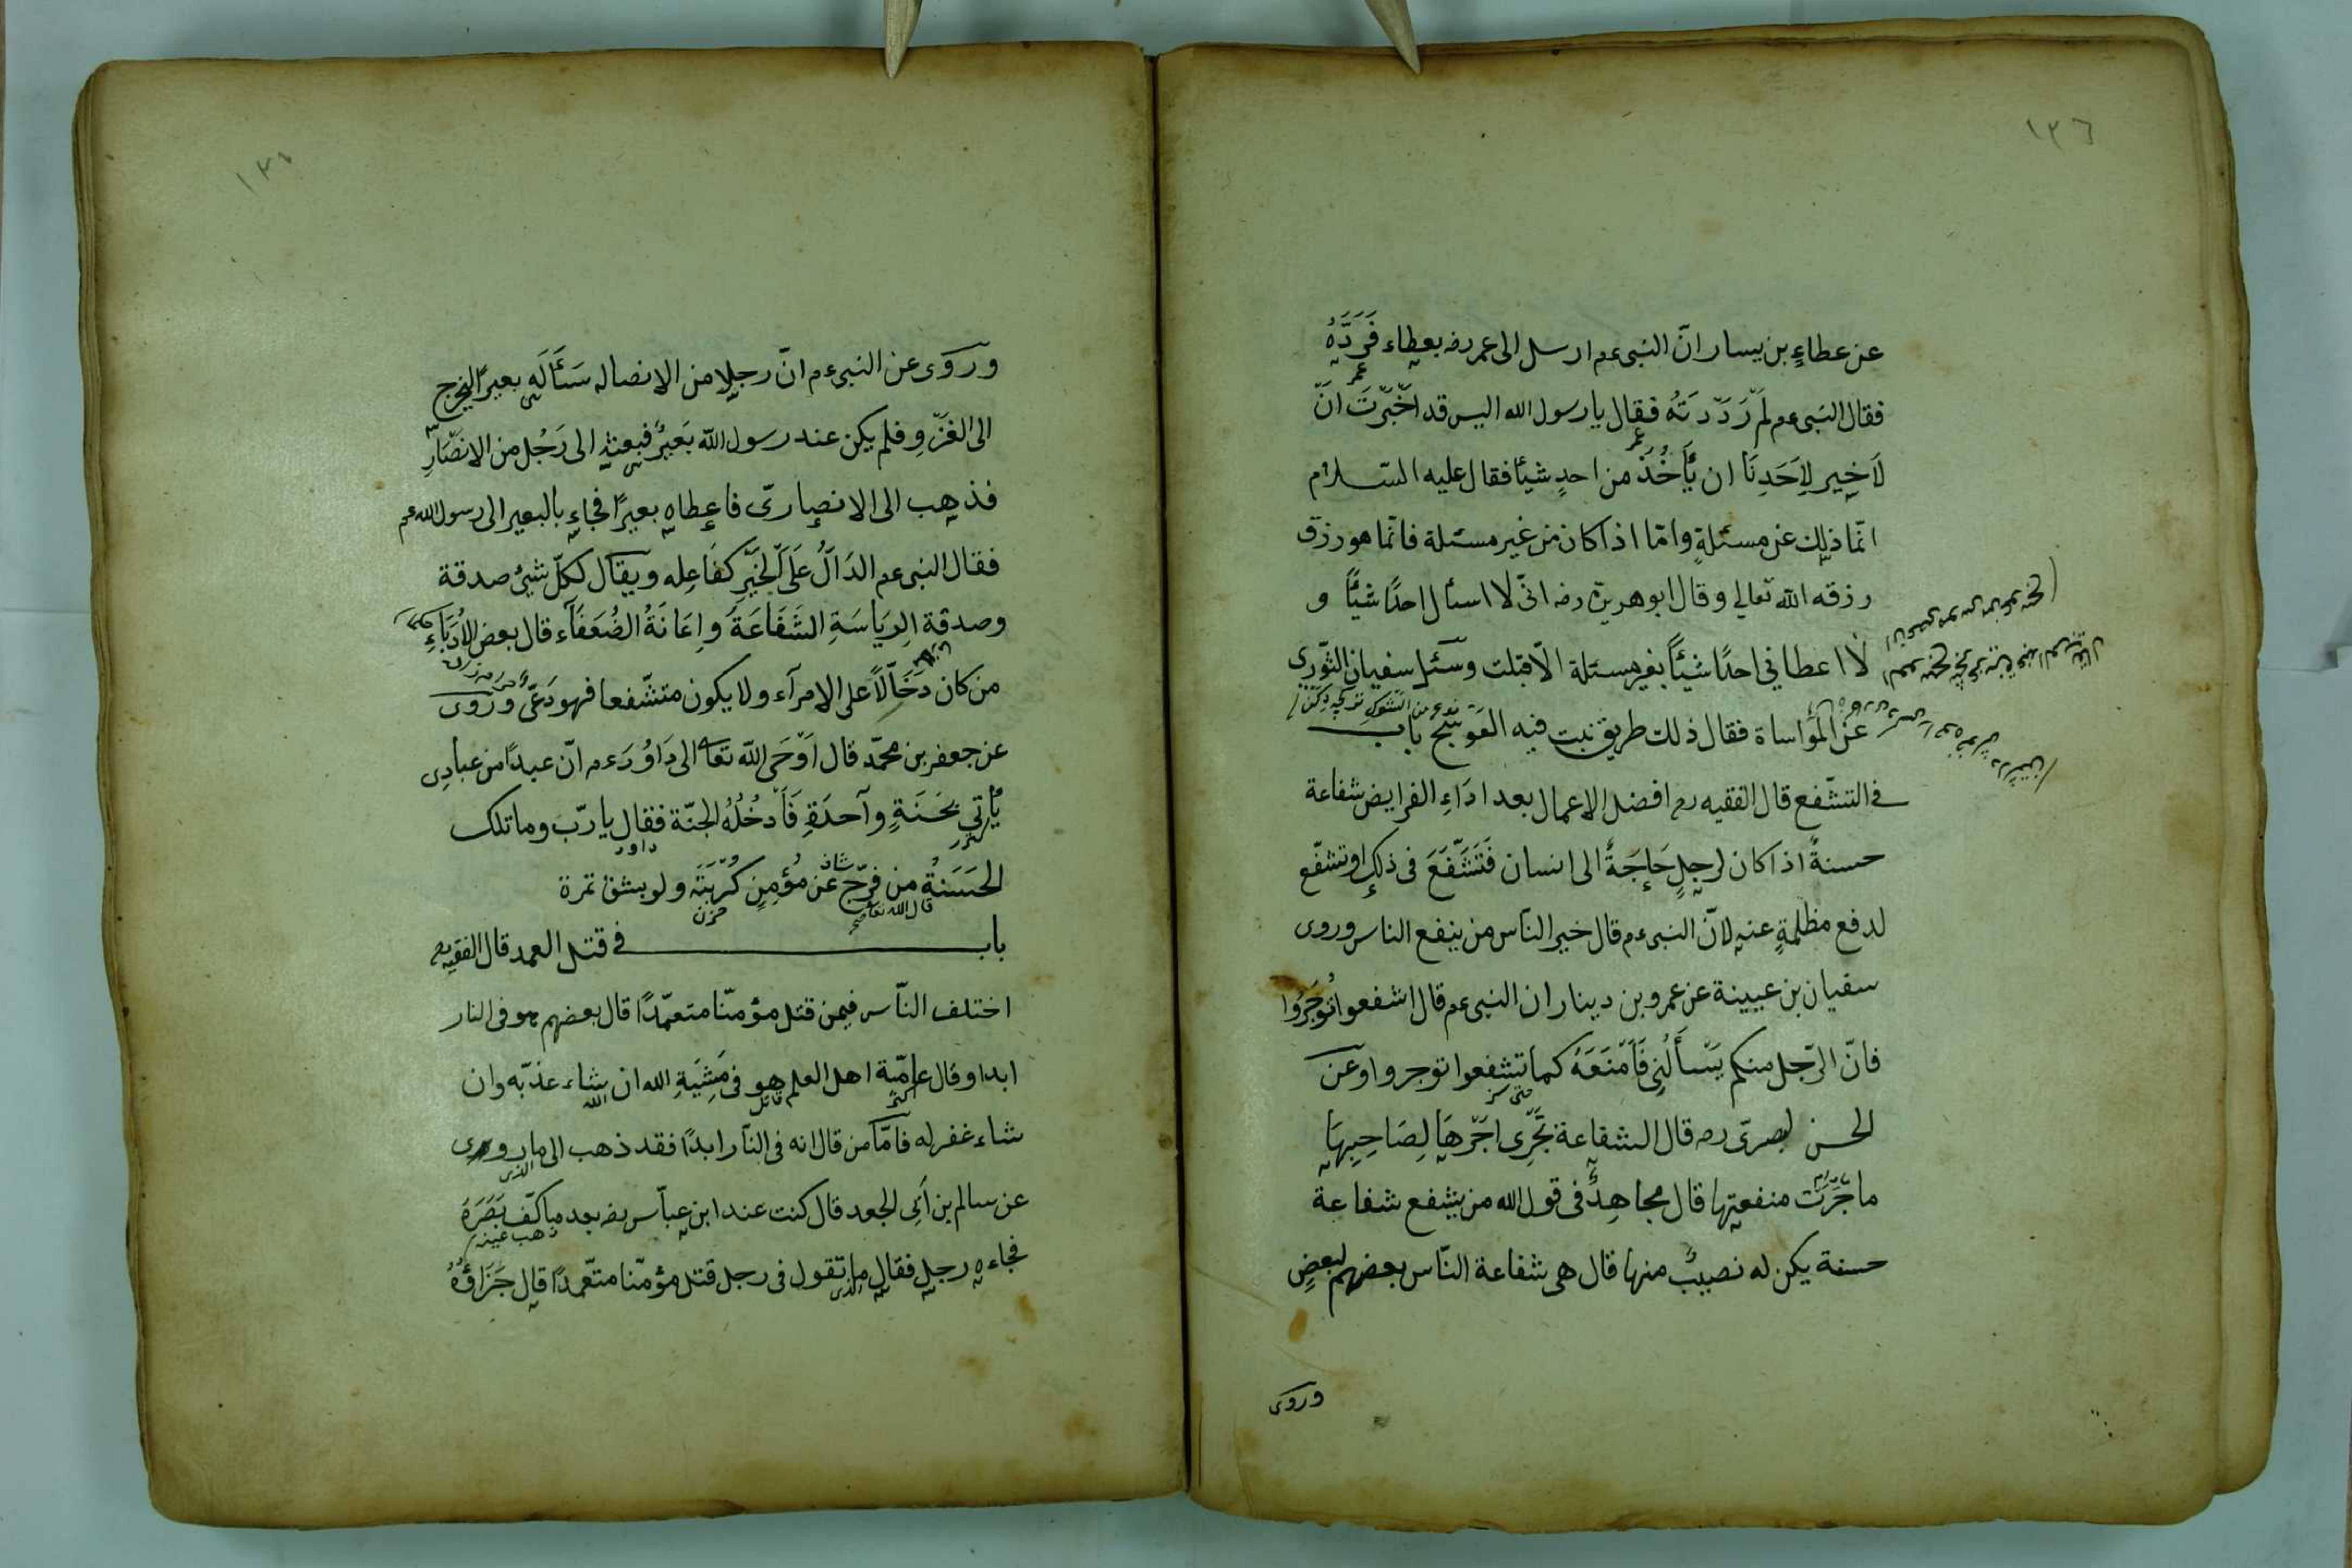 ١٣٦
عن عطاءٍ بن يسار انّ النبى عم ارسل الى عمر رضه بعطاء فَرَدَّهُ
فقال النبى عم لَمْ رَدَدْتَهُ فقال يا رسول الله اليس قد اَخْبَرْتَ انّ
عمر
لَا خير لِاَحَدِنَا ان يَأْخُذَ من احدٍ شيئا فقال عليه السّلام
عمر
انّما ذلك عن مسئلةٍ وامّا اذا كان من غير مسئلة فانّما هو رزق
رزقه الله تعالى وقال ابو هريرة رضه انّى لا اسئل احدًا شيئًا و
لا اعطانى احدًا شيئًا بغير مسئلة الّا قبلت وسئل سفيان الثّورى
عن المواساة فقال ذلك طريق نبت فيه العَوْسَج باب
نوع من الشوك
فى التشّفع قال الفقيه رح افضل الاعمال بعد اَدَاءِ الفرايض شفاعة
حسنةً اذا كان لرجلٍ حَاجَةً الى انسان فَتَشَفَّعَ فى ذلك او تشفّع
لدفع مظلمةٍ عنه لانّ النبى عم قال خير النّاس من ينفع الناس وروى
سفيان بن عيينة عن عمرو بن دينار ان النبى عم قال اشفعوا تُوجَرُوا
فانّ الرّجل منكم يَسْأَلُنِى فَاَمْنَعَهُ كما تشفعوا توجروا وعن
حتى
الحسن البصرىّ رح قال الشفاعة تَجْرِى اَجْرُهَا لِصَاحِبِهَا
ما جَرَتْ منفعتها قال مجاهِدٌ فى قول الله من يشفع شفاعة
حسنة يكن له نصيبٌ منها قال هى شفاعة النّاس بعضهم لبعضٍ
وروى
وروى عن النبى عم انّ رجلا من الانصار سَئَالَهِ بعيرًا ليخرج
الى الغَزْوِ فلم يكن عند رسول الله بَعيرٌ فبعثه الى رَجُلٍ من الانصَارِ
فذهب الى الانصارىّ فاعطاه بعيرًا فجاء بالبعير الى رسول الله عم
فقال النبى عم الدَالُّ عَلَى الخَيْرِ كفَاعِله ويقال لكلّ شيئ صدقة
وصدقة الرِيَاسَةِ الشَفَاعَةُ واِعَانَةُ الضُعَفَآء قال بعض الاُدَبَاءِ
من كان دَخَّالًا على الامرآء ولا يكون متشّفعا فهو دَعىّ وروى
عن جعفر بن محمّد قال اَوْحَى الله تعا الى دَاوُدَ عم انّ عبدًا من عبادى
يَأْتِى بِحَسَنَةٍ وآحدَةٍ فَاَدْخُلُهُ الجنّة فقال يا ربّ وما تلك
داود
الحَسَنَةُ من فرّج عن مُؤمِنٍ كُرْبَتَه ولو بشق تمرة
قال الله تعا
حزن
باب فى قتل العمد قال الفقيه رح
اختلف النّاس فيمن قتل مؤمنًا متعمّدًا قال بعضهم هو فى النار
ابدا وقال عامّة اهل العلم هو فى مَشِيَةِ الله ان شاء عذّبه وان
اكثر
قاتل
الله
شاء غفر له فامّا من قال انه فى النّار ابدًا فقد ذهب الى ما روى
الذى
عن سالم بن اَبِى الجعد قال كنت عند ابن عبّاس رضه بعد ما كفّ بَصَرَهُ
ذهب عينه
فجاءه رجل فقال ما تقول فى رجل قتل مؤمنًا متعّمدًا قال جَزَاؤُهُ
الذى